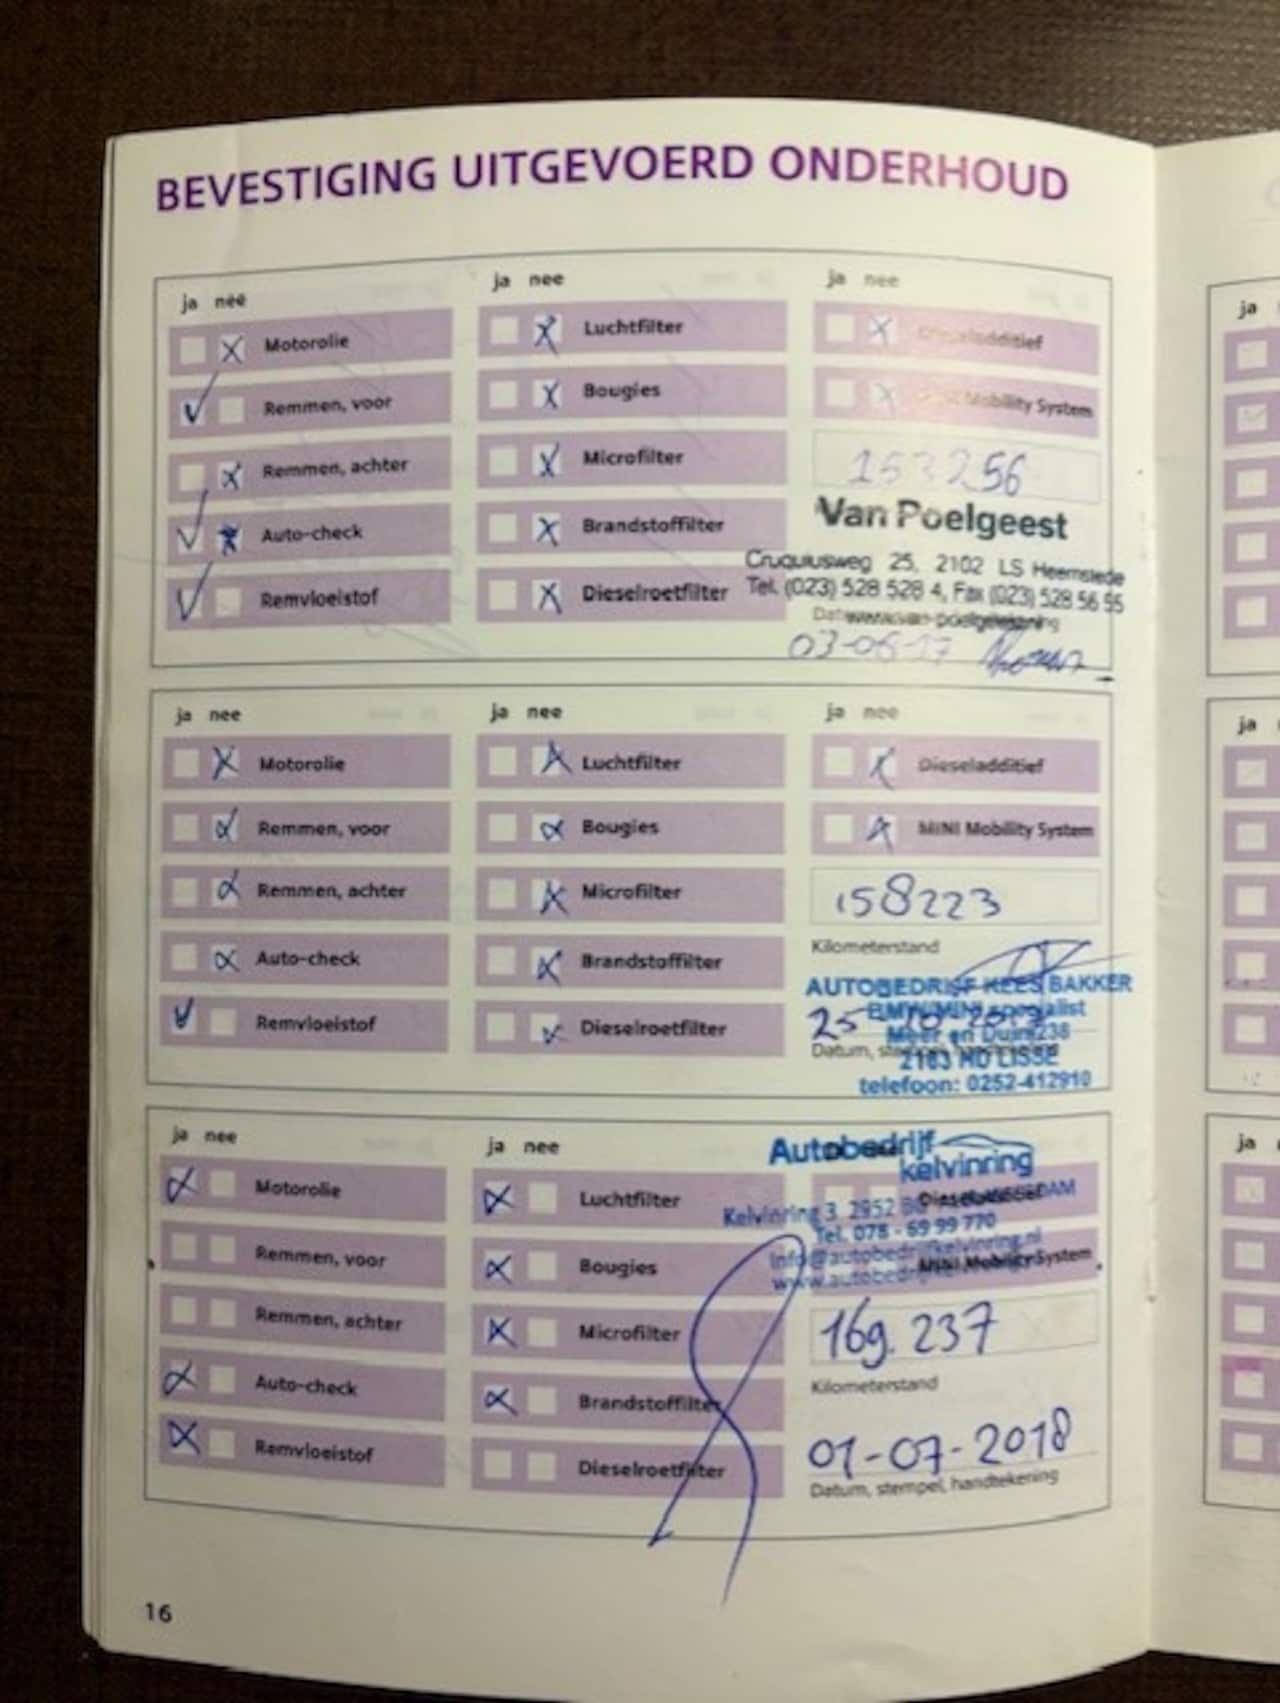 BEVESTIGING UITGEVOERD ONDERHOUD
ja nee
Motorolie
Remmen, voor
Remmen, achter
Auto-check
Remvloeistof
ja nee
Luchtfilter
Bougies
Microfilter
Brandstoffilter
Dieselroetfilter
ja nee
Dieseladditief
Mobility System
153256
Van Poelgeest
Cruquiusweg 25, 2102 LS Heemstede
Tel. (023) 528 528 4, Fax (023) 528 56 55
03-06-17
ja nee
Motorolie
Remmen, voor
Remmen, achter
Auto-check
Remvloeistof
ja nee
Luchtfilter
Bougies
Microfilter
Brandstoffilter
Dieselroetfilter
ja nee
Dieseladditief
MINI Mobility System
158223
Kilometerstand
AUTOBEDRIJF KEES BAKKER
BMW/MINI specialist
25
Meer en Duin 238
Datum,
2163 HD LISSE
telefoon: 0252-412910
ja nee
Motorolie
Remmen, voor
Remmen, achter
Auto-check
Remvloeistof
ja nee
Luchtfilter
Bougies
Microfilter
Brandstoffilter
Dieselroetfilter
Autobedrijf
kelvinring
Kelvinring 3, 2952
Tel. 078 - 69 99 770
info@autobedrijfkelvinring.nl
MINI Mobility System
169.237
Kilometerstand
01-07-2018
Datum, stempel, handtekening
16
ja
ja
ja